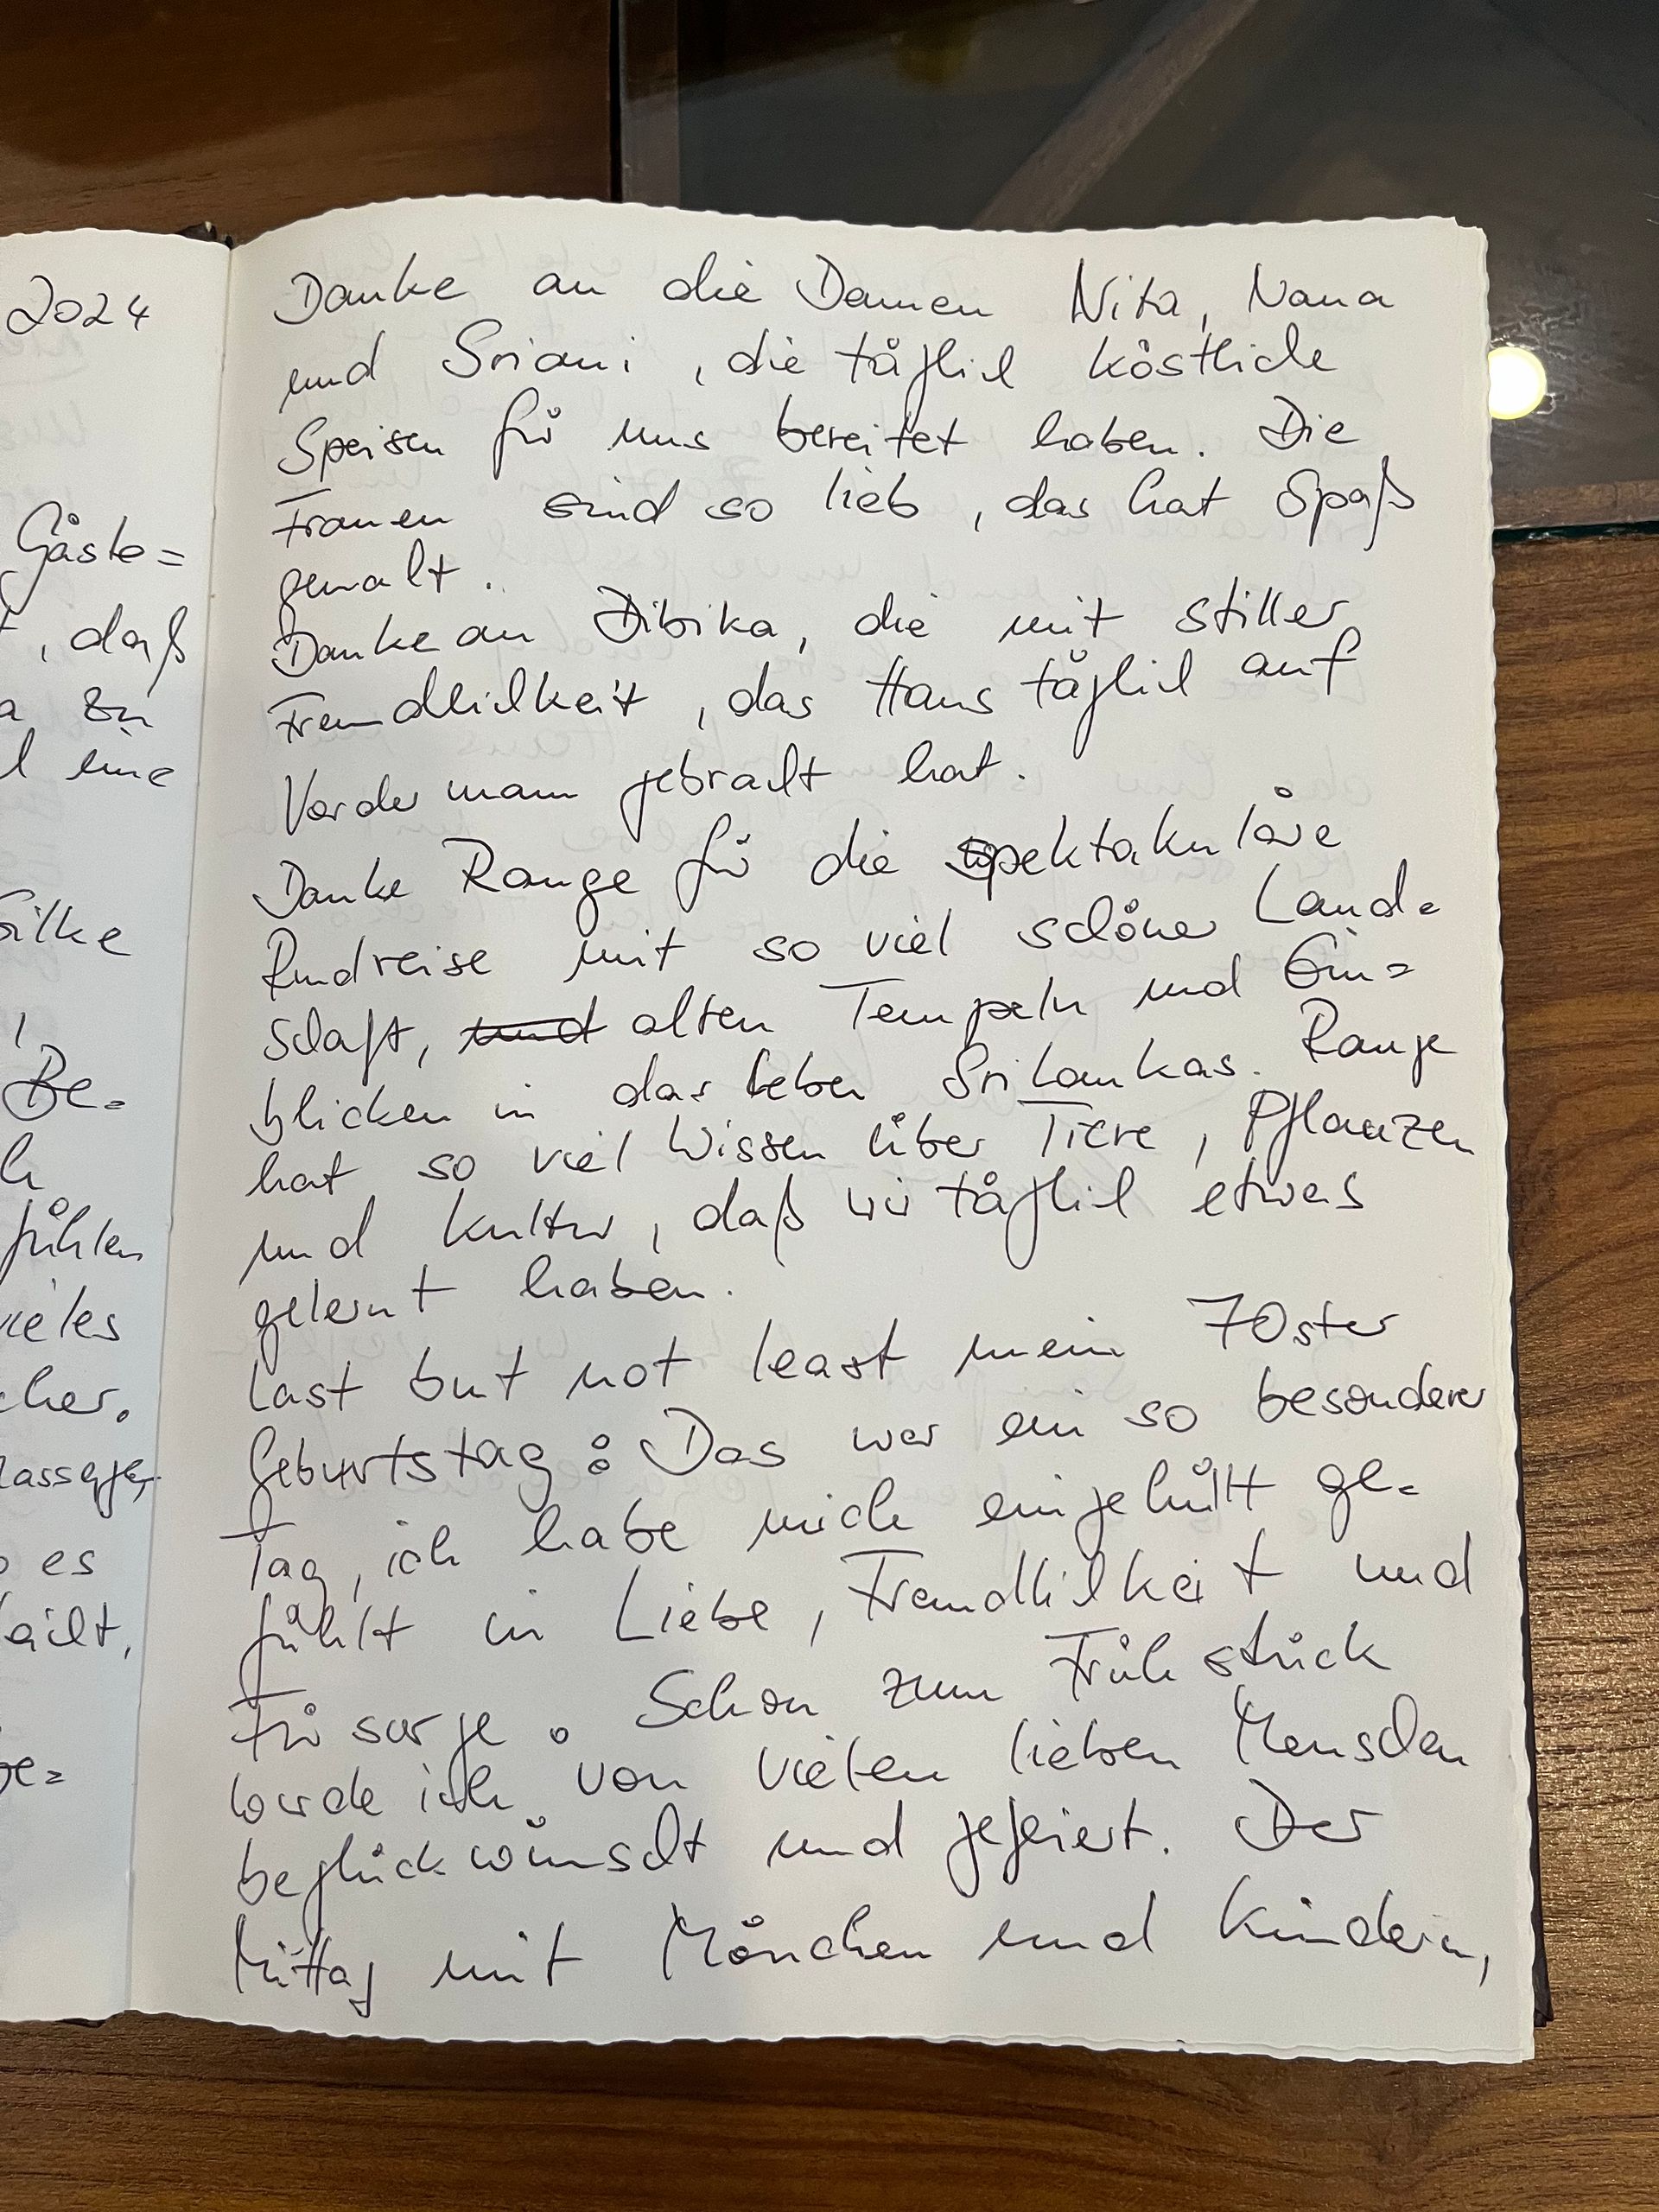 2024
Gäste=
, daß
zu
eine
Silke
Be=
fühlen
vieles
es
Danke an die Damen Nita, Nana
und Sriani, die täglich köstliche
Speisen für uns bereitet haben. Die
Frauen sind so lieb, das hat Spaß
gemacht.
Danke an Dibika, die mit stiller
Freundlichkeit, das Haus täglich auf
Vordermann gebracht hat.
Danke Range für die spektakuläre
Rundreise mit so viel schöner Land=
schaft, und alten Tempeln und Ein=
blicken in das Leben Sri Lankas. Range
hat so viel Wissen über Tiere, Pflanzen
und Kultur, daß wir täglich etwas
gelernt haben.
Last but not least mein 70ster
Geburtstag: Das war ein so besonderer
Tag, ich habe mich eingehüllt ge=
fühlt in Liebe, Freundlichkeit und
Fürsorge. Schon zum Frühstück
wurde ich von vielen lieben Menschen
beglückwünscht und gefeiert. Der
Mittag mit Mönchen und Kindern,